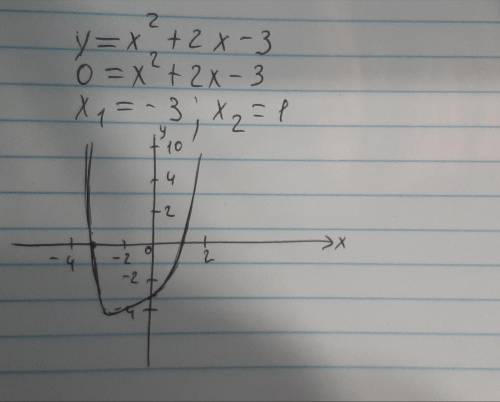 y = x² + 2x - 3
0 = x² + 2x - 3
x₁ = - 3 ; x₂ = 1
y
10
4
2
-4 -2 0 2 x
-2
-4